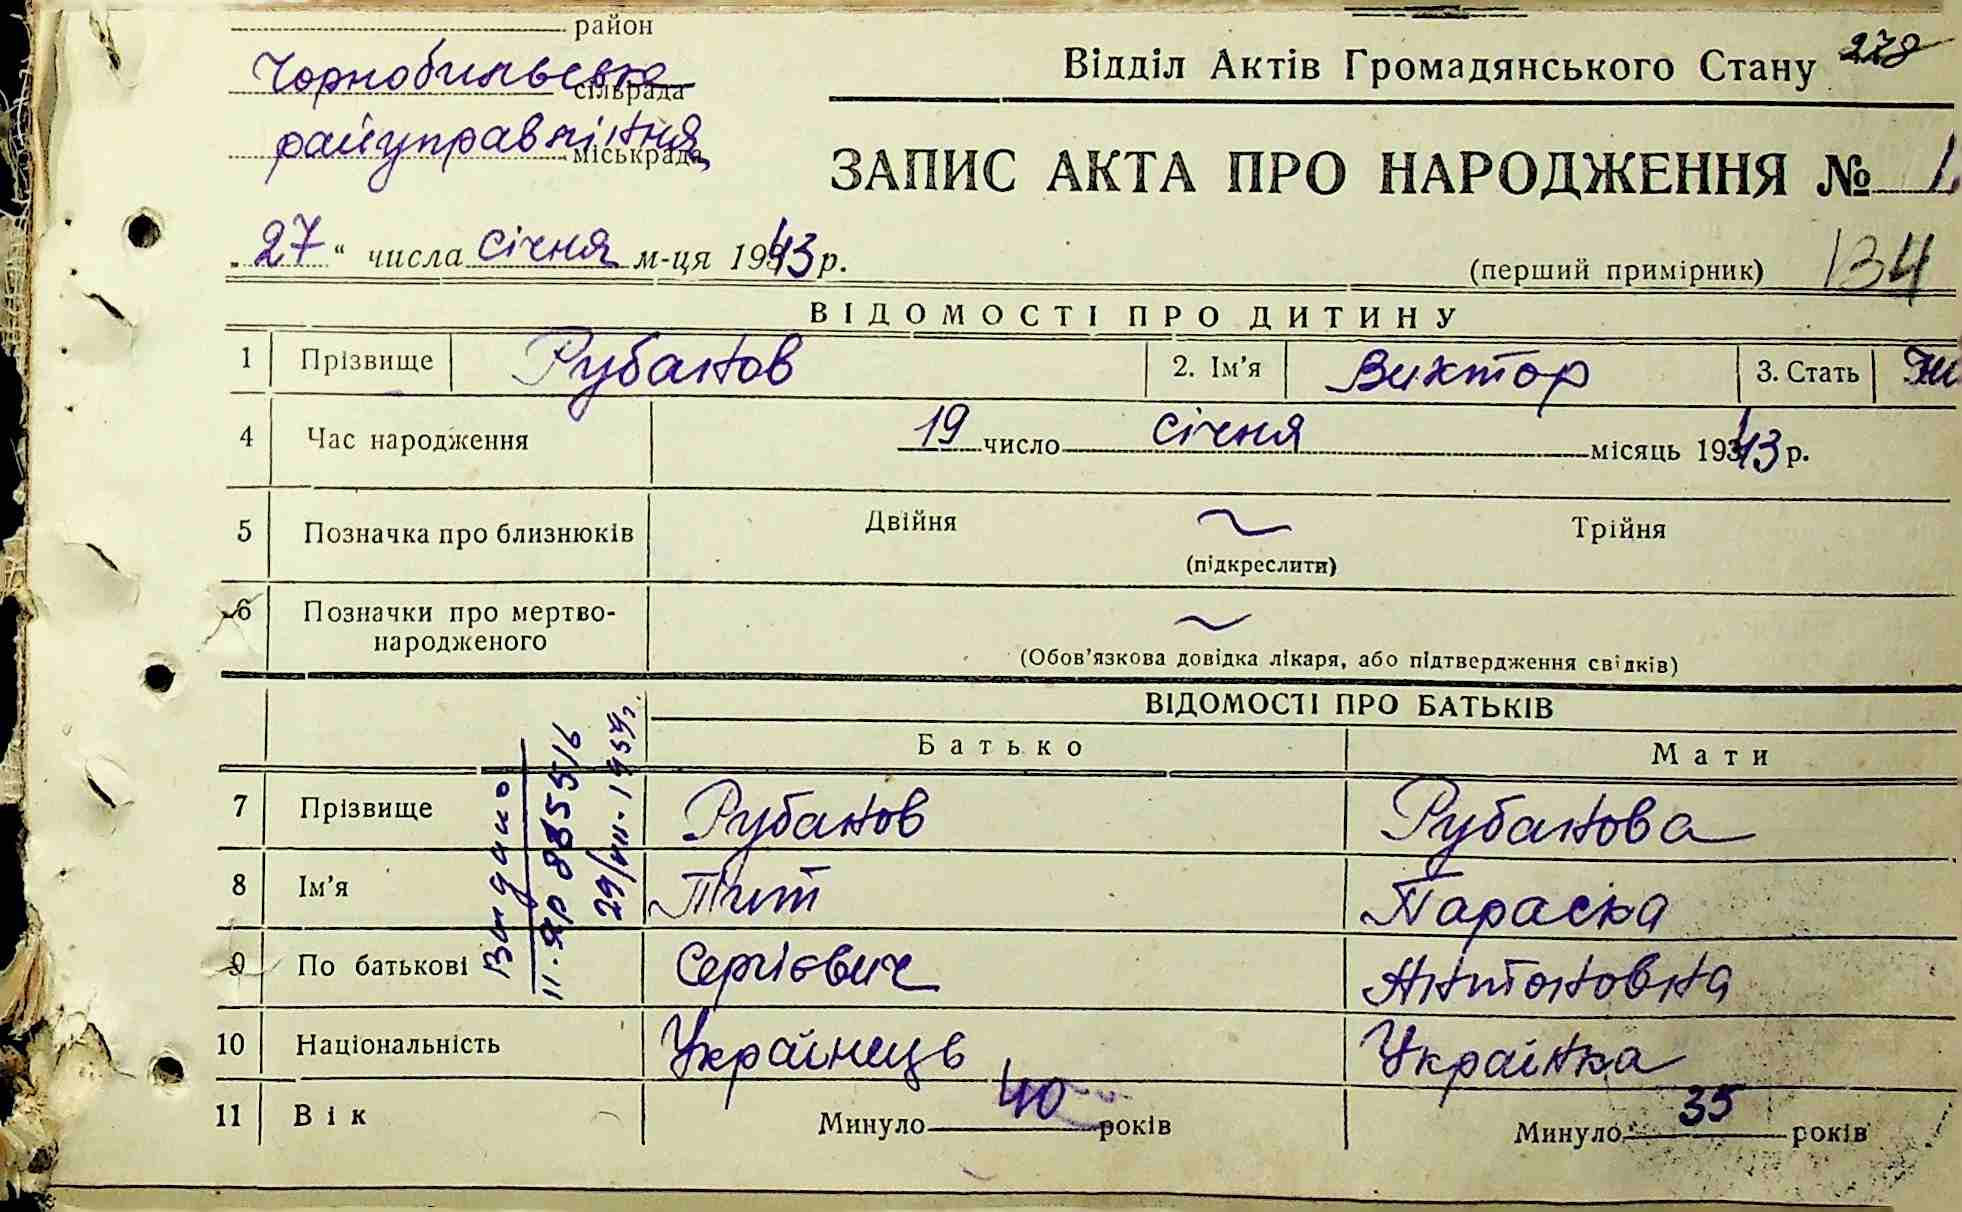 район
Чорнобильська сільрада
райуправління міськрада
Відділ Актів Громадянського Стану 278
ЗАПИС АКТА ПРО НАРОДЖЕННЯ №
„27“ числа січня м-ця 1943 р.
(перший примірник) 134
ВІДОМОСТІ ПРО ДИТИНУ
1 Прізвище Рубанов 2. Ім'я Виктор 3. Стать
4 Час народження 19 число січня місяць 1943 р.
5 Позначка про близнюків Двійня ~ Трійня
(підкреслити)
6 Позначки про мертво-
народженого ~
(Обов'язкова довідка лікаря, або підтвердження свідків)
ВІДОМОСТІ ПРО БАТЬКІВ
Батько Мати
7 Прізвище Рубанов Рубанова
8 Ім'я Тит Параска
9 По батькові Сергієвич Антоновна
10 Національність Українець Українка
11 Вік Минуло 40 років Минуло 35 років
Выдано
29/VIII-1959г.